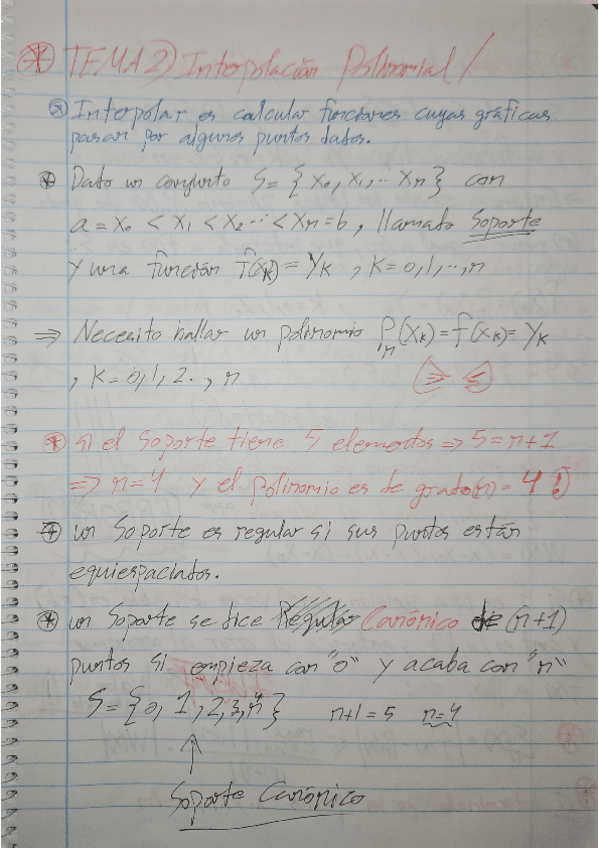 * TEMA 2) Interpolación Polinomial /
Interpolar es calcular funciones cuyas gráficas
pasan por algunos puntos dados.
* Dado un conjunto S = { x₀, x₁, ... xₙ } con
a = x₀ < x₁ < x₂ ... < xₙ = b, llamado Soporte
y una función f(xₖ) = yₖ , k = 0, 1, .., n
⇒ Necesito hallar un polinomio Pₙ(xₖ) = f(xₖ) = yₖ
, k = 0, 1, 2 .., n
(≥ ≤)
* Si el Soporte tiene 5 elementos ⇒ 5 = n+1
⇒ n = 4 y el polinomio es de grado(n) = 4 !
* un Soporte es regular si sus puntos están
equiespaciados.
* un Soporte se dice Regular Canónico de (n+1)
puntos si empieza con "0" y acaba con "n"
S = {0, 1, 2, 3, 4} n+1 = 5 n = 4
↑
Soporte Canónico